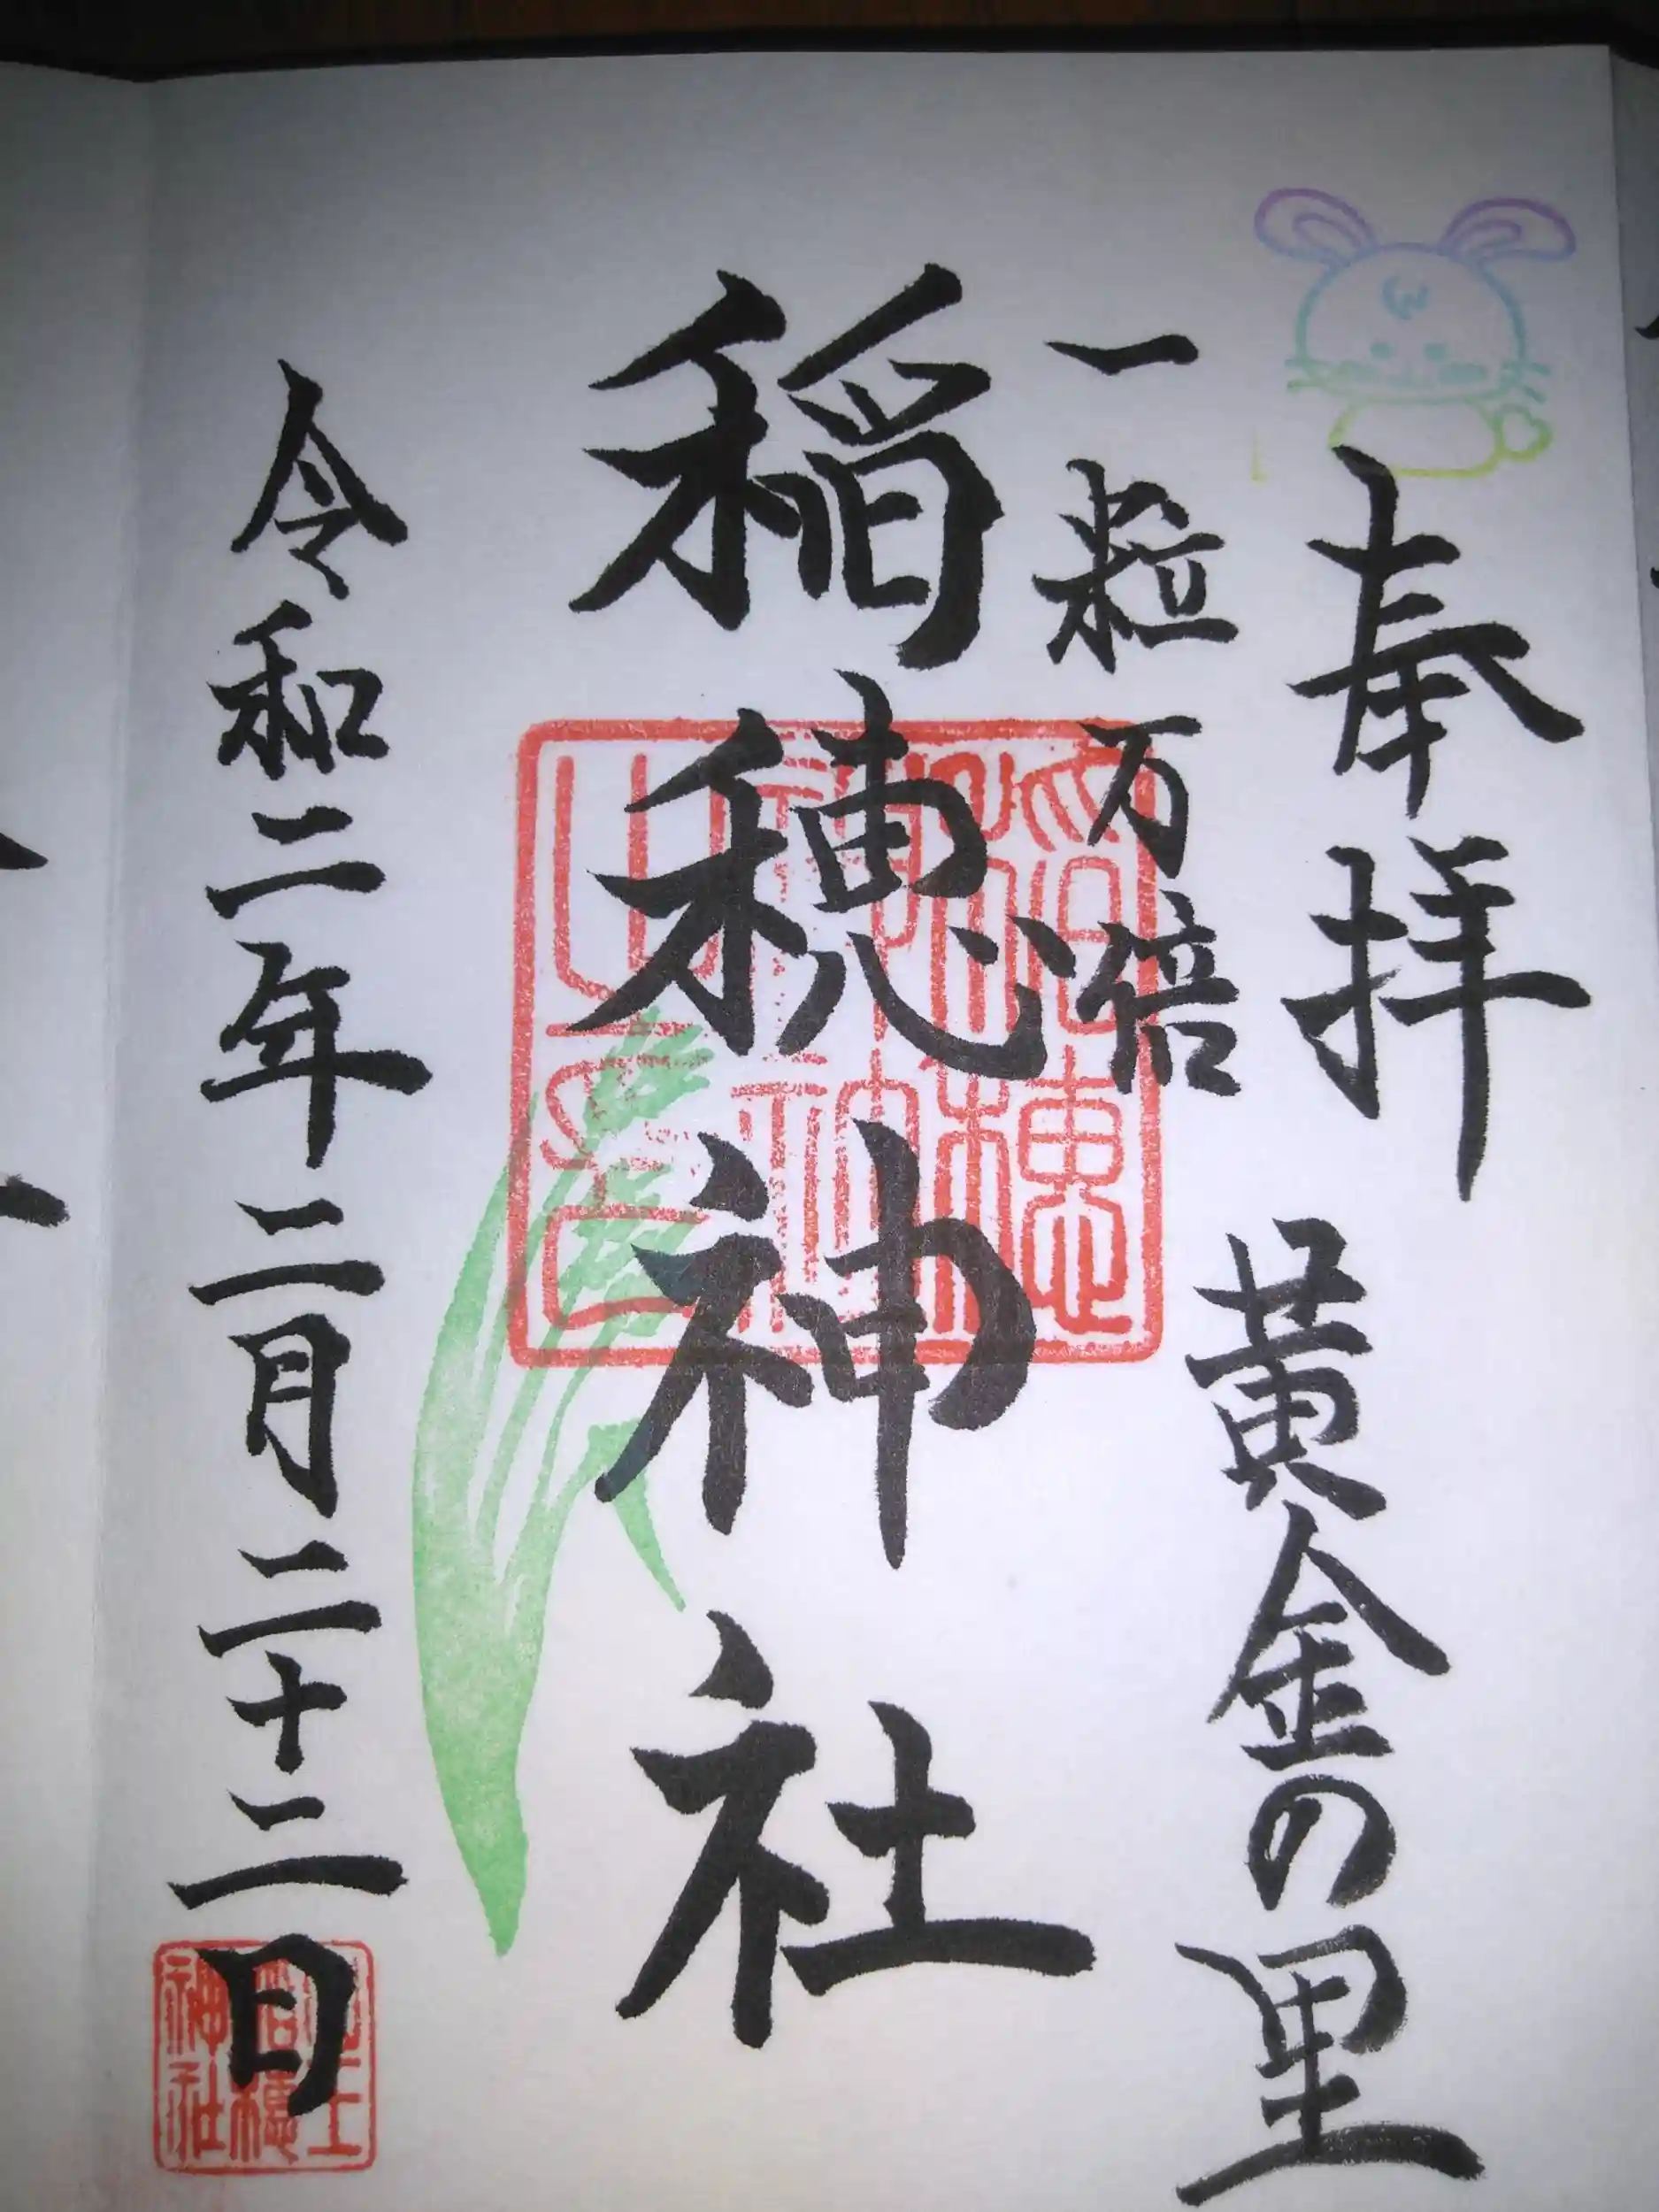 奉拝 黄金の里
一粒万倍
稲穂神社
令和二年二月二十二日